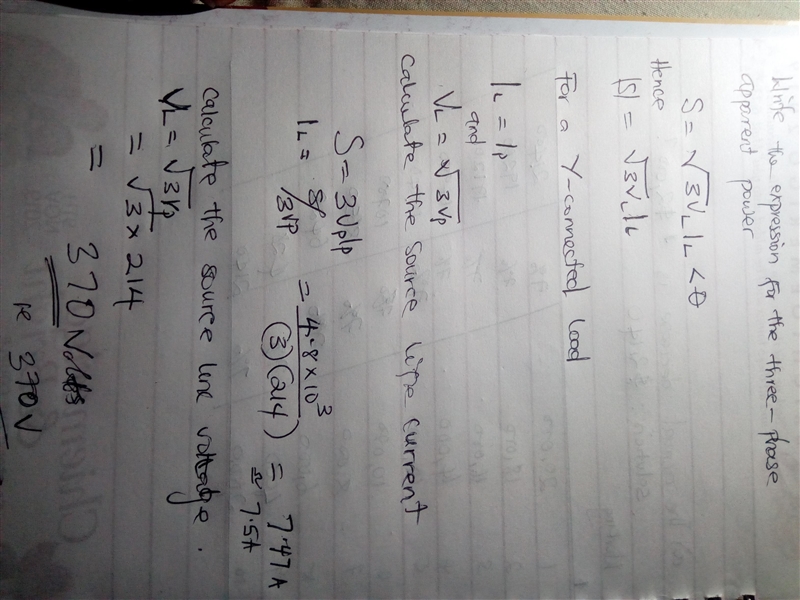 Write the expression for the three-phase
apparent power
S = √3 VL IL < θ
Hence
|S| = √3 VL IL
For a Y-connected load
IL = Ip
and
VL = √3Vp
Calculate the source line current
S = 3VpIp
IL = S/3Vp = 4.8 x 10³/(3)(214) = 7.47A
≈ 7.5A
Calculate the source line voltage.
VL = √3Vp
= √3 x 214
= 370 Volts
370V